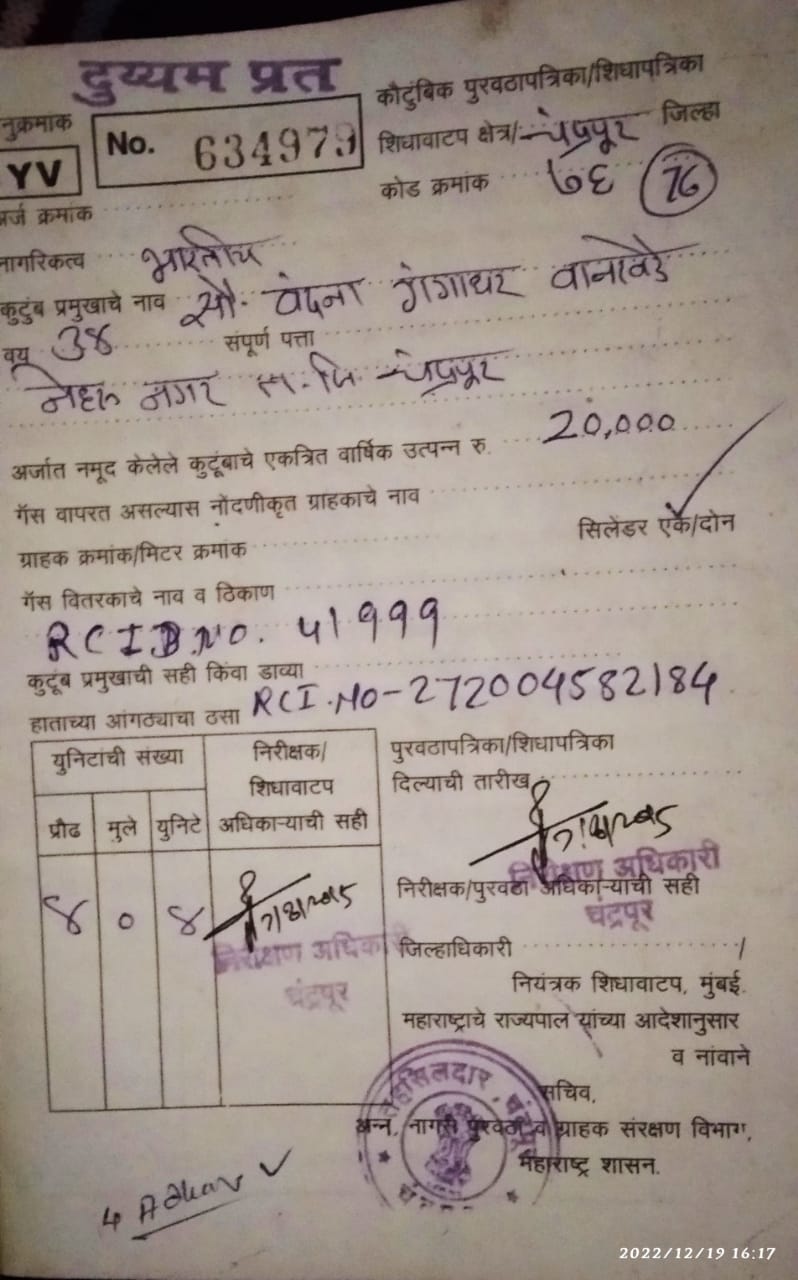 दुय्यम प्रत
नुक्रमाक
YV
No. 634979
कौटुंबिक पुरवठापत्रिका/शिधापत्रिका
शिधावाटप क्षेत्र/ चंद्रपूर जिल्हा
कोड क्रमांक ७६ (76)
र्ज क्रमांक
नागरिकत्व भारतीय
कुटुंब प्रमुखाचे नाव सौ. वंदना गंगाधर वानावेडे
वय 38 संपूर्ण पत्ता
नेहरू नगर त. जि. चंद्रपूर
अर्जात नमूद केलेले कुटूंबाचे एकत्रित वार्षिक उत्पन्न रु. 20,000
गॅस वापरत असल्यास नोंदणीकृत ग्राहकाचे नाव
ग्राहक क्रमांक/मिटर क्रमांक सिलेंडर एक/दोन
गॅस वितरकाचे नाव व ठिकाण
RCIB.NO. 41999
कुटूंब प्रमुखाची सही किंवा डाव्या
हाताच्या आंगठ्याचा ठसा RCI.NO-272004582184
युनिटांची संख्या
निरीक्षक/
शिधावाटप
अधिकाऱ्याची सही
प्रौढ मुले युनिटे
४ ० ४
निरीक्षण अधिकारी
चंद्रपूर
पुरवठापत्रिका/शिधापत्रिका
दिल्याची तारीख
निरीक्षण अधिकारी
निरीक्षक/पुरवठा अधिकाऱ्याची सही
चंद्रपूर
जिल्हाधिकारी
नियंत्रक शिधावाटप, मुंबई.
महाराष्ट्राचे राज्यपाल यांच्या आदेशानुसार
व नांवाने
सचिव,
अन्न, नागरी पुरवठा व ग्राहक संरक्षण विभाग,
महाराष्ट्र शासन.
तहसिलदार, चंद्रपूर
4 Adhar
2022/12/19 16:17